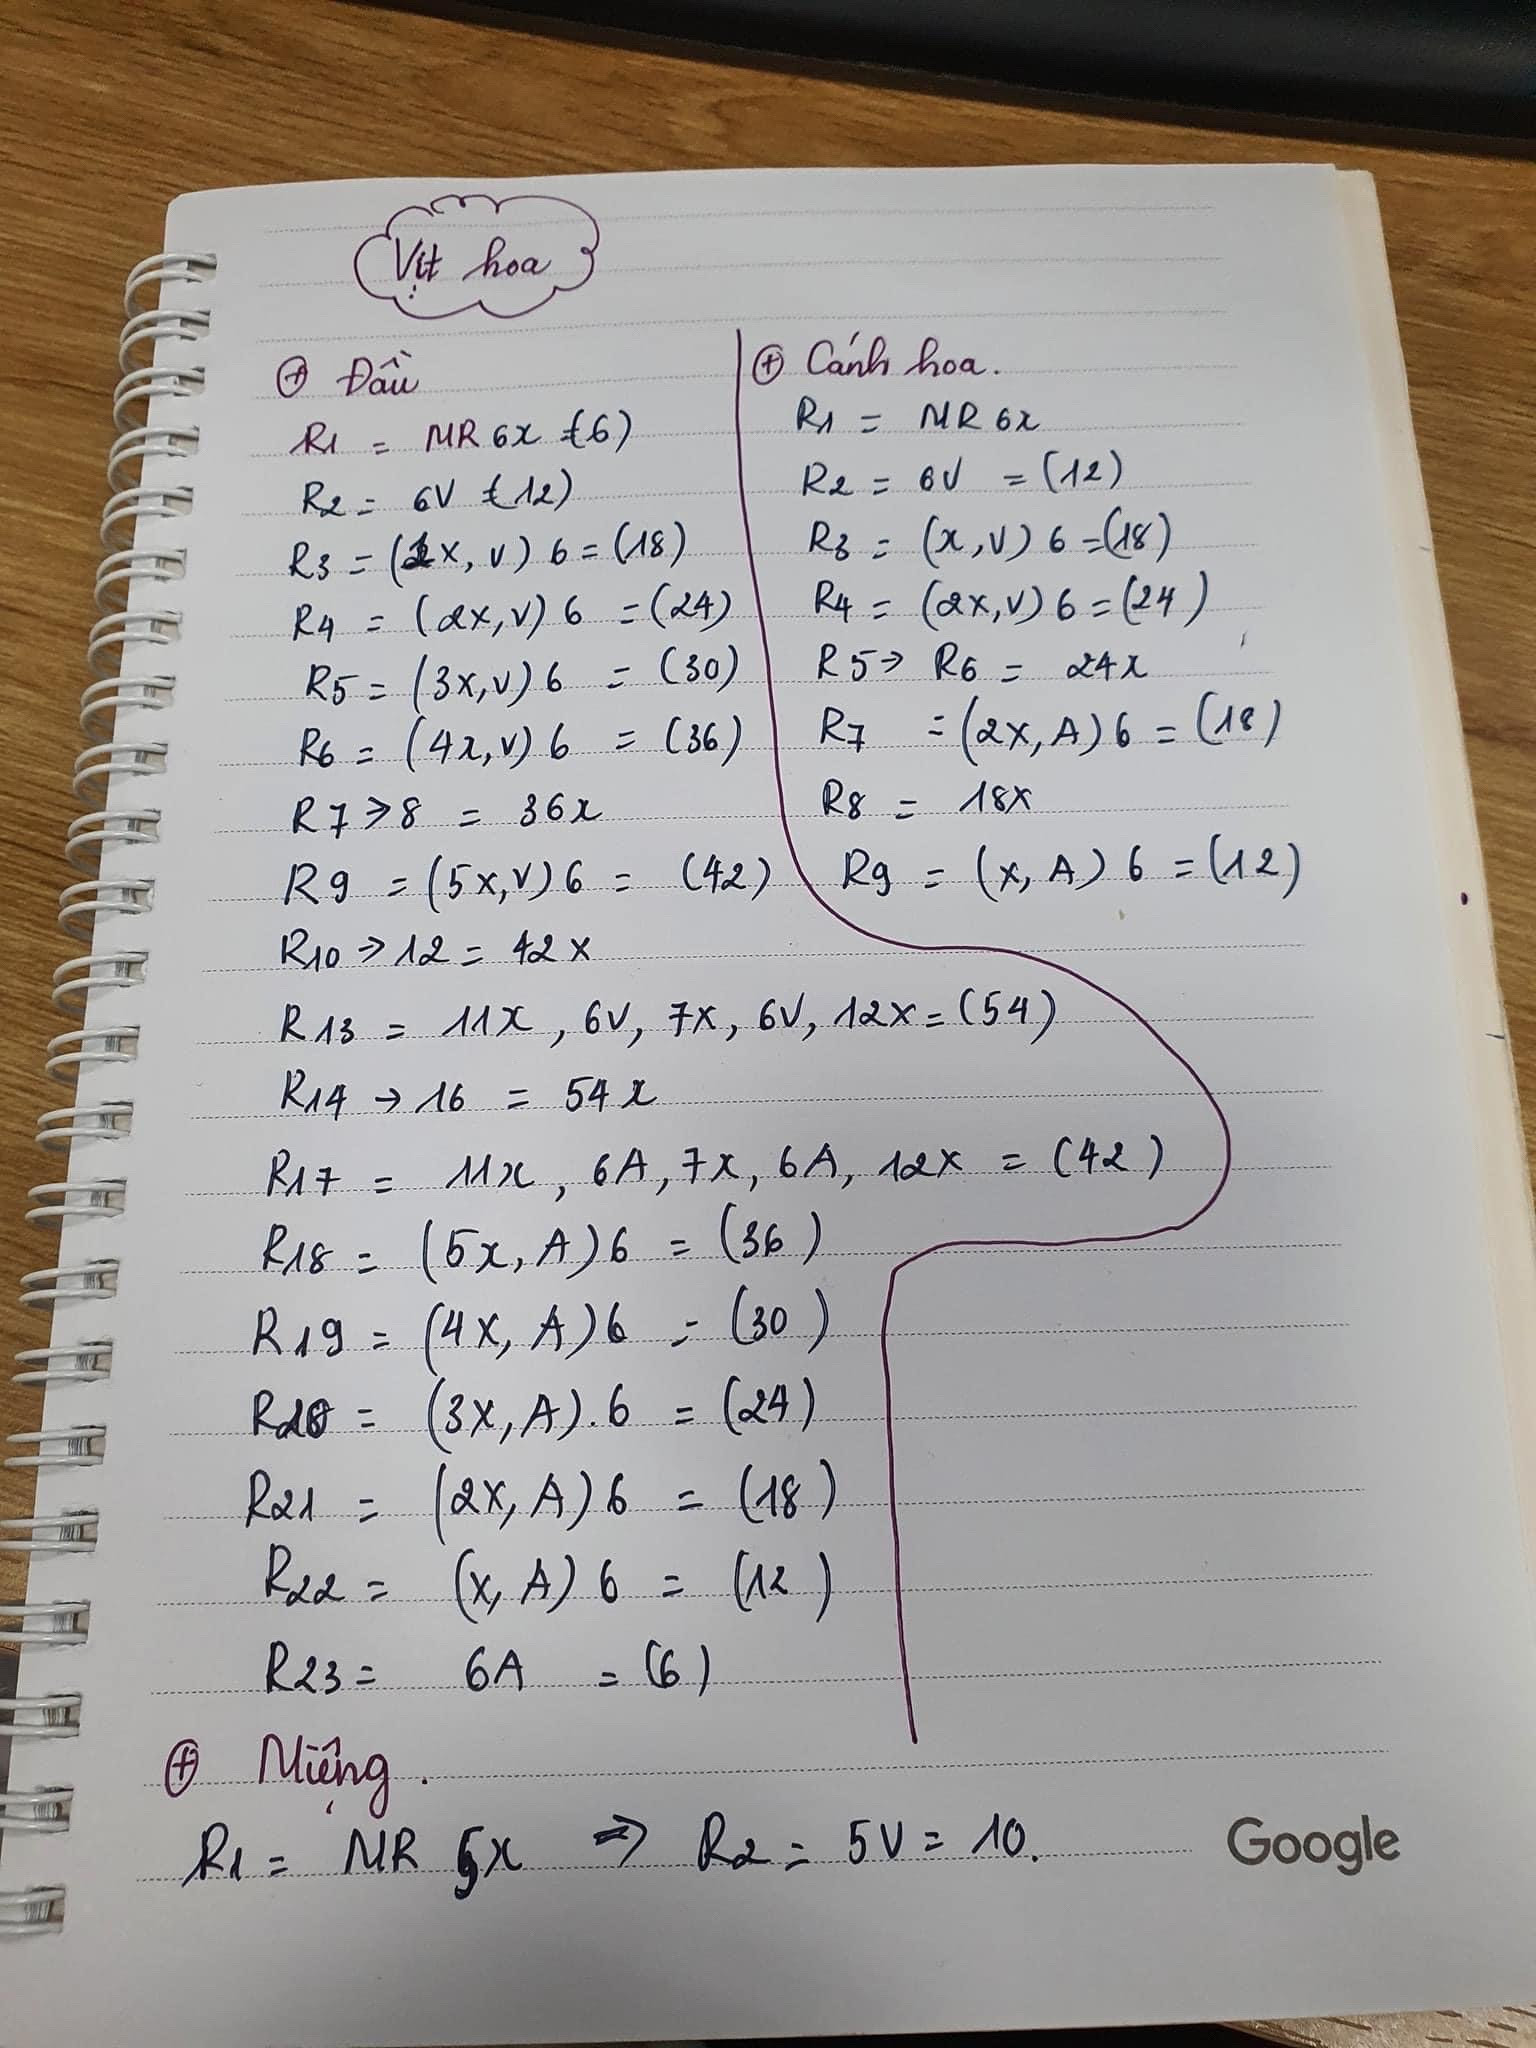 Vịt hoa
⊕ Đầu
R1 = MR 6x = (6)
R2 = 6V = (12)
R3 = (1x, V) 6 = (18)
R4 = (2x, V) 6 = (24)
R5 = (3x, V) 6 = (30)
R6 = (4x, V) 6 = (36)
R7 → 8 = 36x
R9 = (5x, V) 6 = (42)
R10 → 12 = 42x
R13 = 11x, 6V, 7x, 6V, 12x = (54)
R14 → 16 = 54x
R17 = 11x, 6A, 7x, 6A, 12x = (42)
R18 = (5x, A) 6 = (36)
R19 = (4x, A) 6 = (30)
R20 = (3x, A). 6 = (24)
R21 = (2x, A) 6 = (18)
R22 = (x, A) 6 = (12)
R23 = 6A = (6)
⊕ Cánh hoa.
R1 = MR 6x
R2 = 6V = (12)
R3 = (x, V) 6 = (18)
R4 = (2x, V) 6 = (24)
R5 → R6 = 24x
R7 = (2x, A) 6 = (18)
R8 = 18x
R9 = (x, A) 6 = (12)
⊕ Miệng.
R1 = MR 5x ⇒ R2 = 5V = 10.
Google